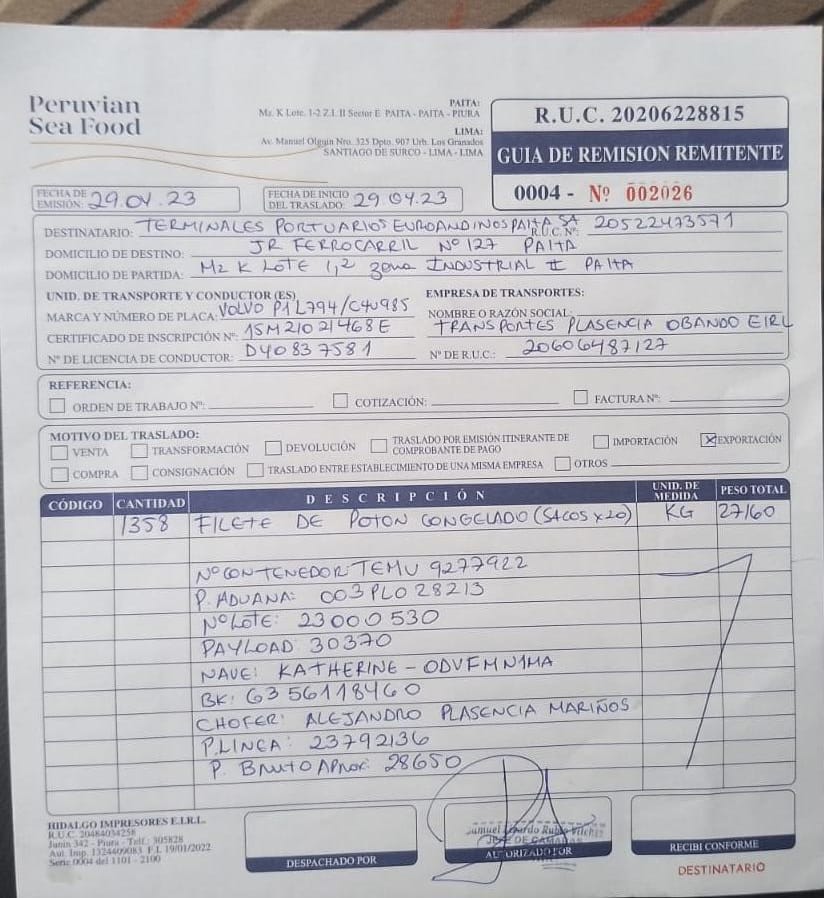 Peruvian
Sea Food
PAITA:
Mz. K Lote. 1-2 Z.I. II Sector E PAITA - PAITA - PIURA
LIMA:
Av. Manuel Olguin Nro. 325 Dpto. 907 Urb. Los Granados
SANTIAGO DE SURCO - LIMA - LIMA
R.U.C. 20206228815
GUIA DE REMISION REMITENTE
0004 - Nº 002026
FECHA DE EMISIÓN: 29.04.23
FECHA DE INICIO DEL TRASLADO: 29.04.23
DESTINATARIO: TERMINALES PORTUARIOS EUROANDINOS PAITA SA R.U.C. Nº: 20522473571
DOMICILIO DE DESTINO: JR FERROCARRIL Nº 127 PAITA
DOMICILIO DE PARTIDA: Mz K LOTE 1,2 zona INDUSTRIAL II PAITA
UNID. DE TRANSPORTE Y CONDUCTOR (ES)
MARCA Y NÚMERO DE PLACA: VOLVO P1L794/C4U985
CERTIFICADO DE INSCRIPCIÓN Nº: 15M21021468E
Nº DE LICENCIA DE CONDUCTOR: D40837581
EMPRESA DE TRANSPORTES:
NOMBRE O RAZÓN SOCIAL:
TRANSPORTES PLASENCIA OBANDO EIRL
Nº DE R.U.C.: 20606487127
REFERENCIA:
ORDEN DE TRABAJO Nº: COTIZACIÓN: FACTURA Nº:
MOTIVO DEL TRASLADO:
VENTA TRANSFORMACIÓN DEVOLUCIÓN TRASLADO POR EMISIÓN ITINERANTE DE COMPROBANTE DE PAGO IMPORTACIÓN X EXPORTACIÓN
COMPRA CONSIGNACIÓN TRASLADO ENTRE ESTABLECIMIENTO DE UNA MISMA EMPRESA OTROS
CÓDIGO CANTIDAD DESCRIPCIÓN UNID. DE MEDIDA PESO TOTAL
1358 FILETE DE POTON CONGELADO (SACOS x 20) KG 27160
Nº CONTENEDOR: TEMU 9277922
P. ADUANA: 003PLO28213
Nº LOTE: 23000530
PAYLOAD: 30370
NAVE: KATHERINE - ODVFMN1MA
BK: 6356118460
CHOFER: ALEJANDRO PLASENCIA MARIÑOS
P. LINEA: 23792136
P. BRUTO APROX: 28650
HIDALGO IMPRESORES E.I.R.L.
R.U.C. 20484034258
Junín 342 - Piura - Telf.: 305828
Aut. Imp. 1324409083 F.I. 19/01/2022
Serie 0004 del 1101 - 2100
DESPACHADO POR
JEFE DE CAMARAS
AUTORIZADO POR
RECIBI CONFORME
DESTINATARIO